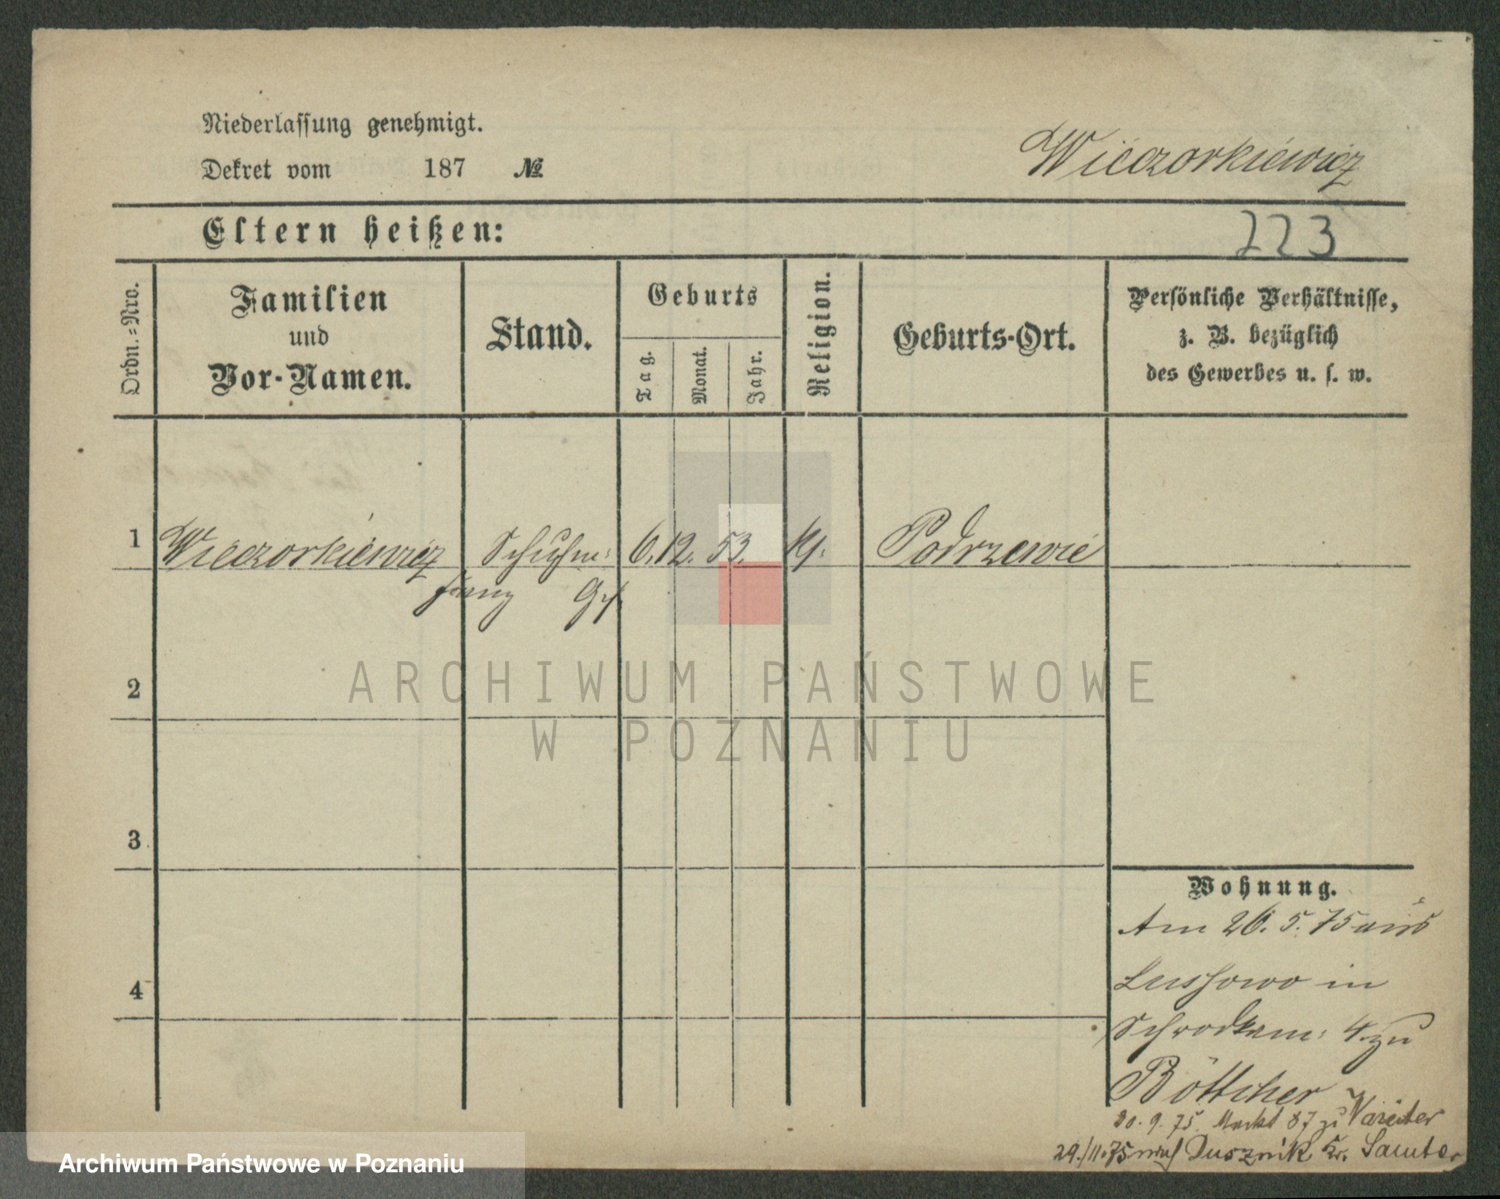 Niederlassung genehmigt.
Dekret vom 187 №
Wieczorkiewicz
Eltern heißen:
223
Ordn.-Nro.
Familien
und
Vor-Namen.
Stand.
Geburts
Tag.
Monat.
Jahr.
Religion.
Geburts-Ort.
Persönliche Verhältnisse,
z. B. bezüglich
des Gewerbes u. s. w.
1 Wieczorkiewicz Schuhm: 6. 12. 53. kt. Podrzewie
Franz Gs.
2
3
4
Wohnung.
Am 26. 5. 75 aus
Lussowo in
Schrodkam: 4. zu
Böttcher
20. 9. 75. Markt 87 zu
24./11.75 nach Dusznik Kr. Samter
ARCHIWUM PAŃSTWOWE
W POZNANIU
Archiwum Państwowe w Poznaniu